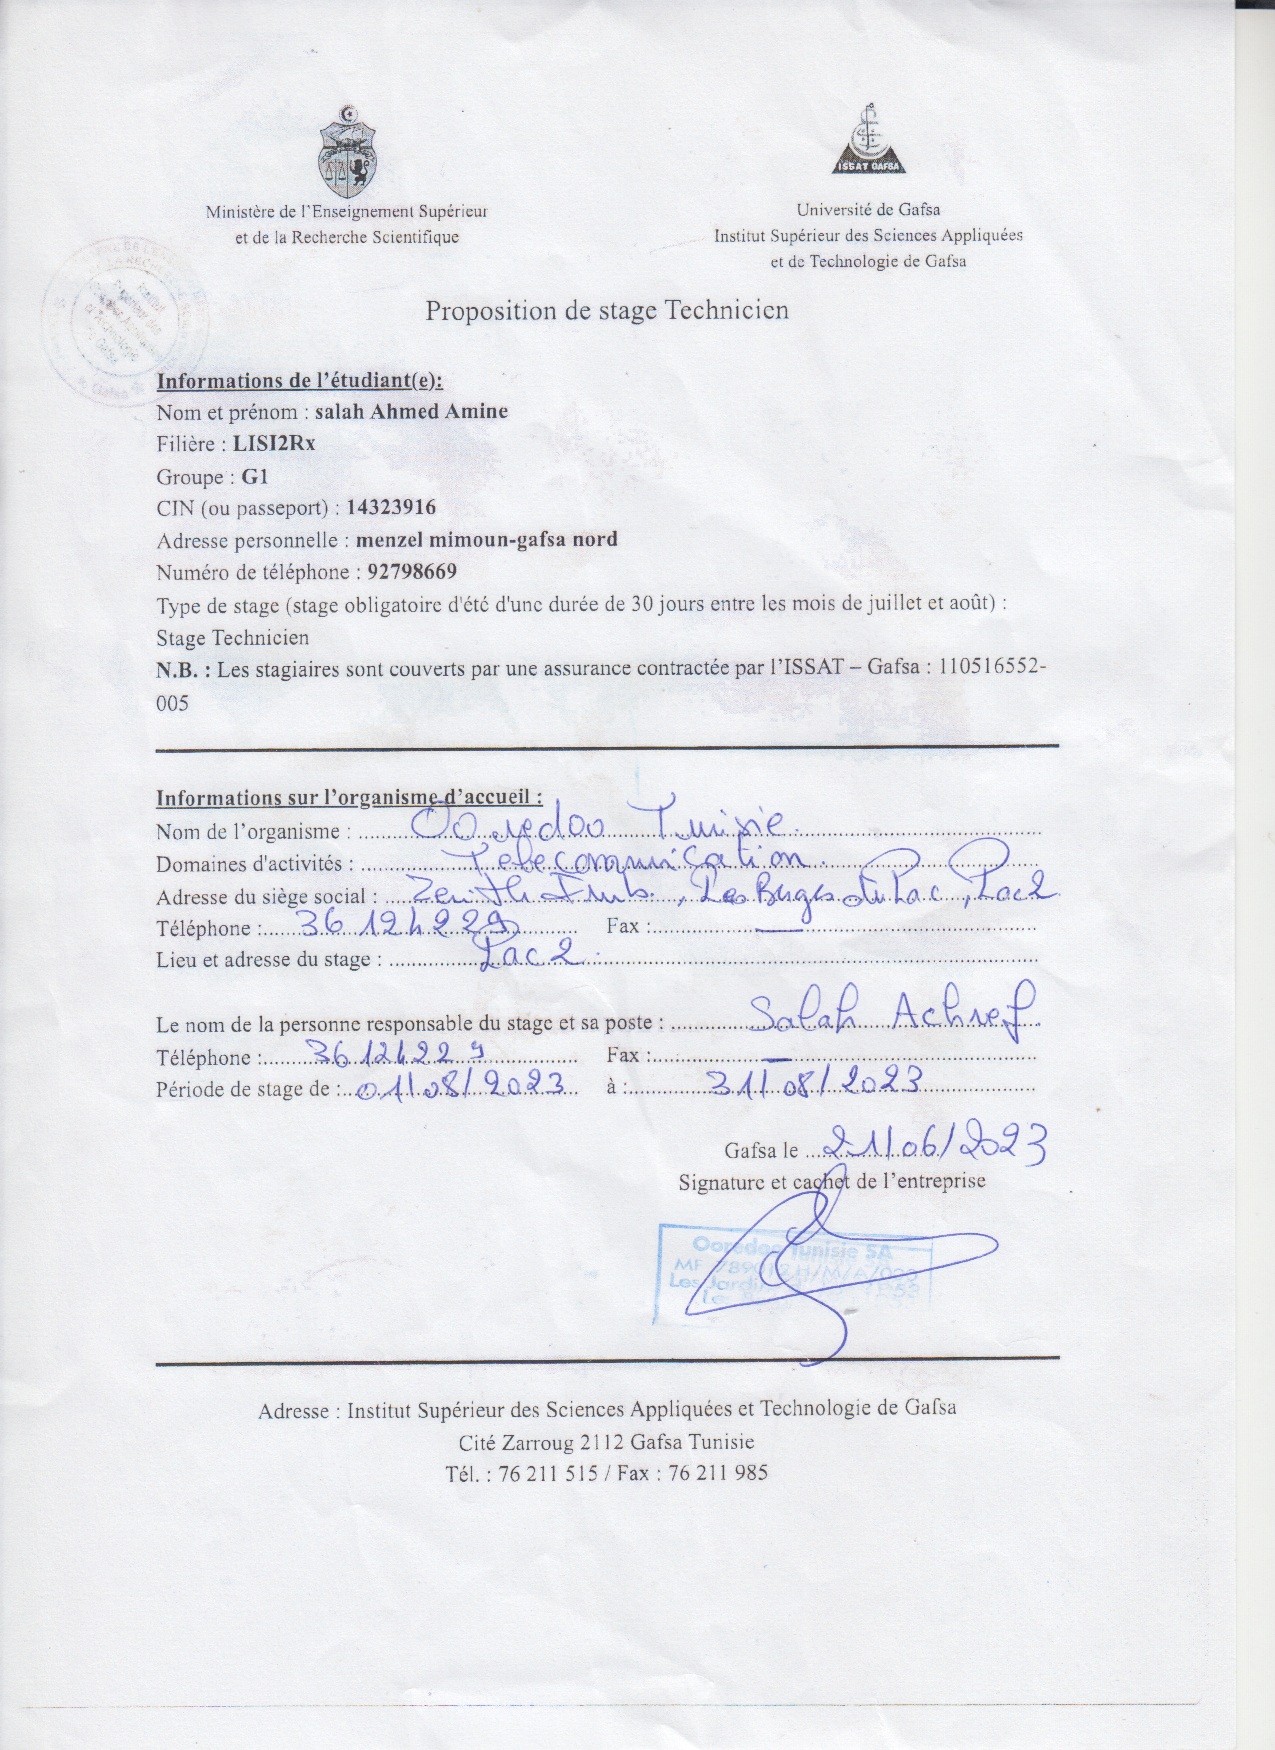 ISSAT GAFSA
Ministère de l'Enseignement Supérieur
et de la Recherche Scientifique
Université de Gafsa
Institut Supérieur des Sciences Appliquées
et de Technologie de Gafsa
Proposition de stage Technicien
Informations de l'étudiant(e):
Nom et prénom : salah Ahmed Amine
Filière : LISI2Rx
Groupe : G1
CIN (ou passeport) : 14323916
Adresse personnelle : menzel mimoun-gafsa nord
Numéro de téléphone : 92798669
Type de stage (stage obligatoire d'été d'une durée de 30 jours entre les mois de juillet et août) :
Stage Technicien
N.B. : Les stagiaires sont couverts par une assurance contractée par l'ISSAT – Gafsa : 110516552-
005
Informations sur l'organisme d'accueil :
Nom de l'organisme : Ooredoo Tunisie
Domaines d'activités : Telecommunication
Adresse du siège social : Zenith , Les Berges du Lac, Lac2
Téléphone : 36 124 229 Fax : —
Lieu et adresse du stage : Lac 2
Le nom de la personne responsable du stage et sa poste : Salah Achref
Téléphone : 36 124 229 Fax : —
Période de stage de : 01/08/2023 à : 31/08/2023
Gafsa le 21/06/2023
Signature et cachet de l'entreprise
Ooredoo Tunisie SA
MF
Les Jardins
Adresse : Institut Supérieur des Sciences Appliquées et Technologie de Gafsa
Cité Zarroug 2112 Gafsa Tunisie
Tél. : 76 211 515 / Fax : 76 211 985